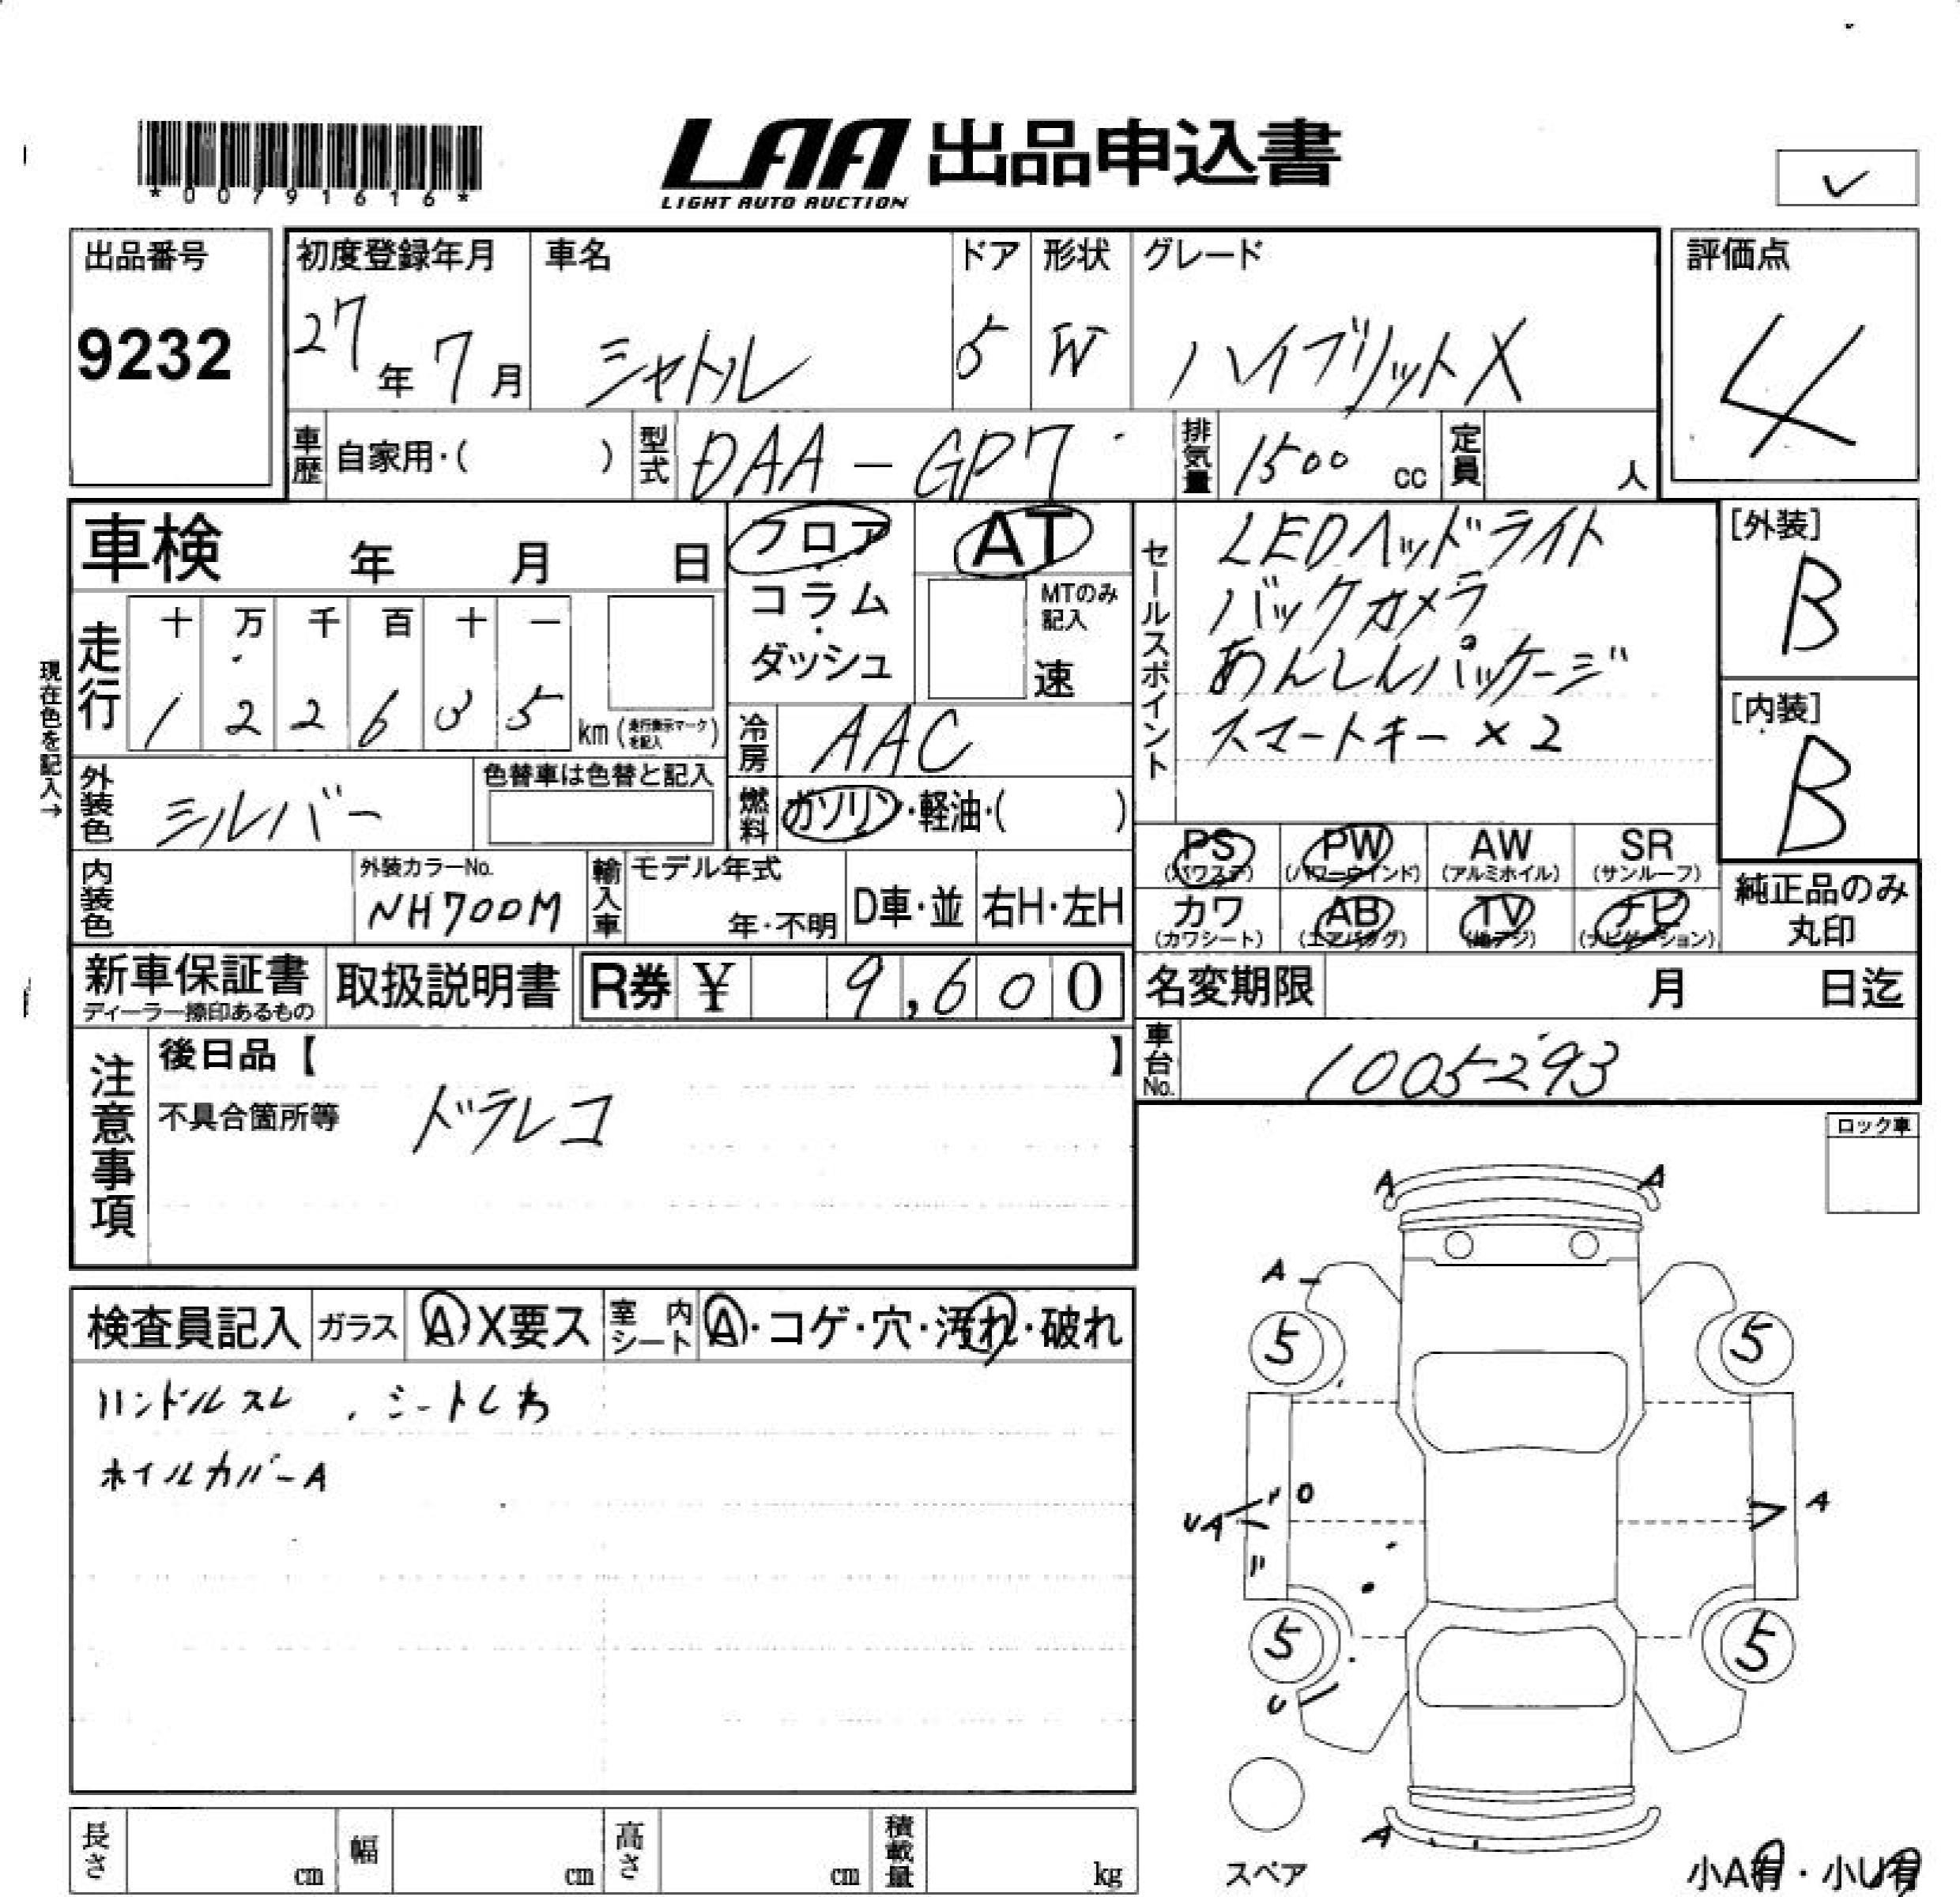 *00791616*
LAA 出品申込書
LIGHT AUTO AUCTION
✓
出品番号
9232
初度登録年月
27年7月
車名
シャトル
ドア
5
形状
W
グレード
ハイブリットX
評価点
4
車歴
自家用・( )
型式
DAA-GP7
排気量
1500 cc
定員
人
車検 年 月 日
フロア
コラム
・
ダッシュ
AT
MTのみ
記入
速
セールスポイント
LEDヘッドライト
バックカメラ
あんしんパッケージ
スマートキー×2
[外装]
B
[内装]
B
現在色を記入→
走行
十 万 千 百 十 一
1 2 2 6 3 5
km(走行表示マークを記入)
冷房
AAC
外装色
シルバー
色替車は色替と記入
燃料
ガソリン・軽油・( )
PS
(パワステ)
PW
(パワーウインド)
AW
(アルミホイル)
SR
(サンルーフ)
カワ
(カワシート)
AB
(エアバッグ)
TV
(地デジ)
ナビ
(ナビゲーション)
純正品のみ
丸印
内装色
外装カラーNo.
NH700M
輸入車
モデル年式
年・不明
D車・並
右H・左H
新車保証書
ディーラー捺印あるもの
取扱説明書
R券 ¥ 9,600
名変期限 月 日迄
車台No.
1005293
注意事項
後日品【 】
不具合箇所等
ドラレコ
ロック車
検査員記入
ガラス
A X要ス
室内
シート
A・コゲ・穴・汚れ・破れ
ハンドルスレ、シートしわ
ホイルカバーA
A A
A
5 5
UA
A
5 5
U
A
スペア
小A有・小U有
長さ cm
幅 cm
高さ cm
積載量 kg